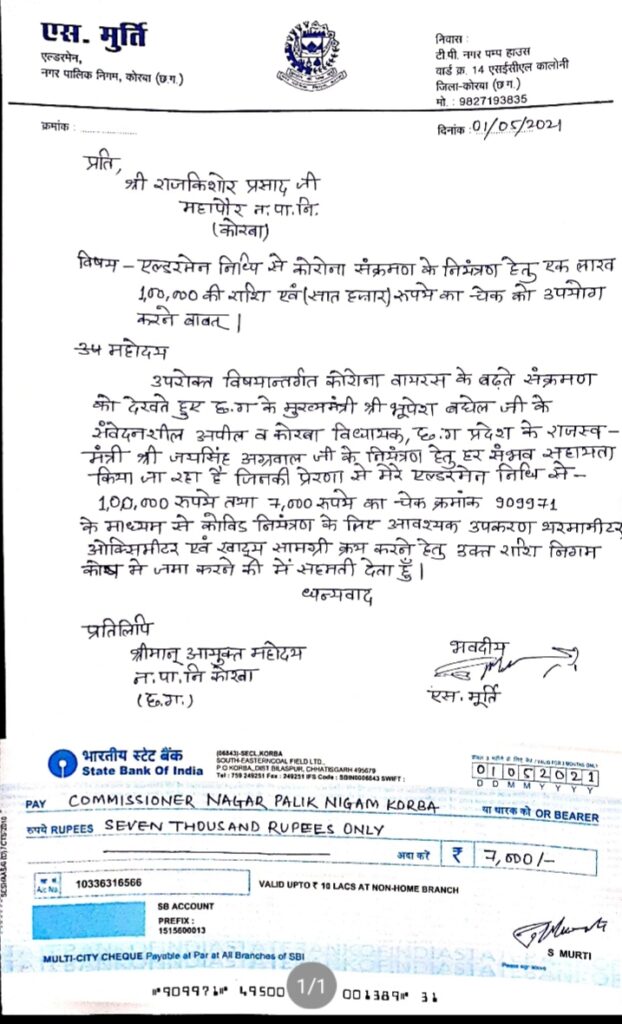 एस. मुर्ति
एल्डरमेन,
नगर पालिक निगम, कोरबा (छ ग.)
निवास :
टी.पी. नगर पम्प हाउस
वार्ड क्र. 14 एसईसीएल कालोनी
जिला-कोरबा (छ ग.)
मो. : 9827193835
क्रमांक :
दिनांक : 01/05/2021
प्रति,
श्री राजकिशोर प्रसाद जी
महापौर न.पा.नि.
(कोरबा)
विषय - एल्डरमेन निधि से कोरोना संक्रमण के नियंत्रण हेतु एक लाख
1,00,000 की राशि एवं (सात हजार) रुपये का चेक को उपयोग
करने बाबत् |
महोदय
उपरोक्त विषयान्तर्गत कोरोना वायरस के बढ़ते संक्रमण
को देखते हुए छ.ग के मुख्यमंत्री श्री भूपेश बघेल जी के
संवेदनशील अपील व कोरबा विधायक, छ.ग प्रदेश के राजस्व-
मंत्री श्री जयसिंह अग्रवाल जी के नियंत्रण हेतु हर संभव सहायता
किया जा रहा है जिनकी प्रेरणा से मेरे एल्डरमेन निधि से-
1,00,000 रुपये तथा 7,000 रुपये का चेक क्रमांक 909971
के माध्यम से कोविड नियंत्रण के लिए आवश्यक उपकरण थरमामीटर,
ओक्सिमीटर एवं खाद्य सामग्री क्रय करने हेतु उक्त राशि निगम
कोष मे जमा करने की में सहमती देता हूँ |
धन्यवाद
प्रतिलिपि
श्रीमान् आयुक्त महोदय
न.पा.नि कोरबा
(छ.ग.)
भवदीय
एस. मूर्ति
भारतीय स्टेट बैंक
State Bank Of India
(06843)-SECL,KORBA
SOUTH-EASTERNCOAL FIELD LTD.,
P O KORBA,DIST BILASPUR, CHHATISGARH 495679
Tel : 759 249251 Fax : 249251 IFS Code : SBIN0006843 SWIFT :
VALID FOR 3 MONTHS ONLY
01052021
D D M M Y Y Y Y
PAY COMMISSIONER NAGAR PALIK NIGAM KORBA या धारक को OR BEARER
रुपये RUPEES SEVEN THOUSAND RUPEES ONLY
अदा करें ₹ 7,000/-
A/c No. 10336316566
VALID UPTO ₹ 10 LACS AT NON-HOME BRANCH
SB ACCOUNT
PREFIX :
1515600013
S MURTI
Please sign above
MULTI-CITY CHEQUE Payable at Par at All Branches of SBI
⑈909971⑈ 49500 001389⑈ 31
1/1